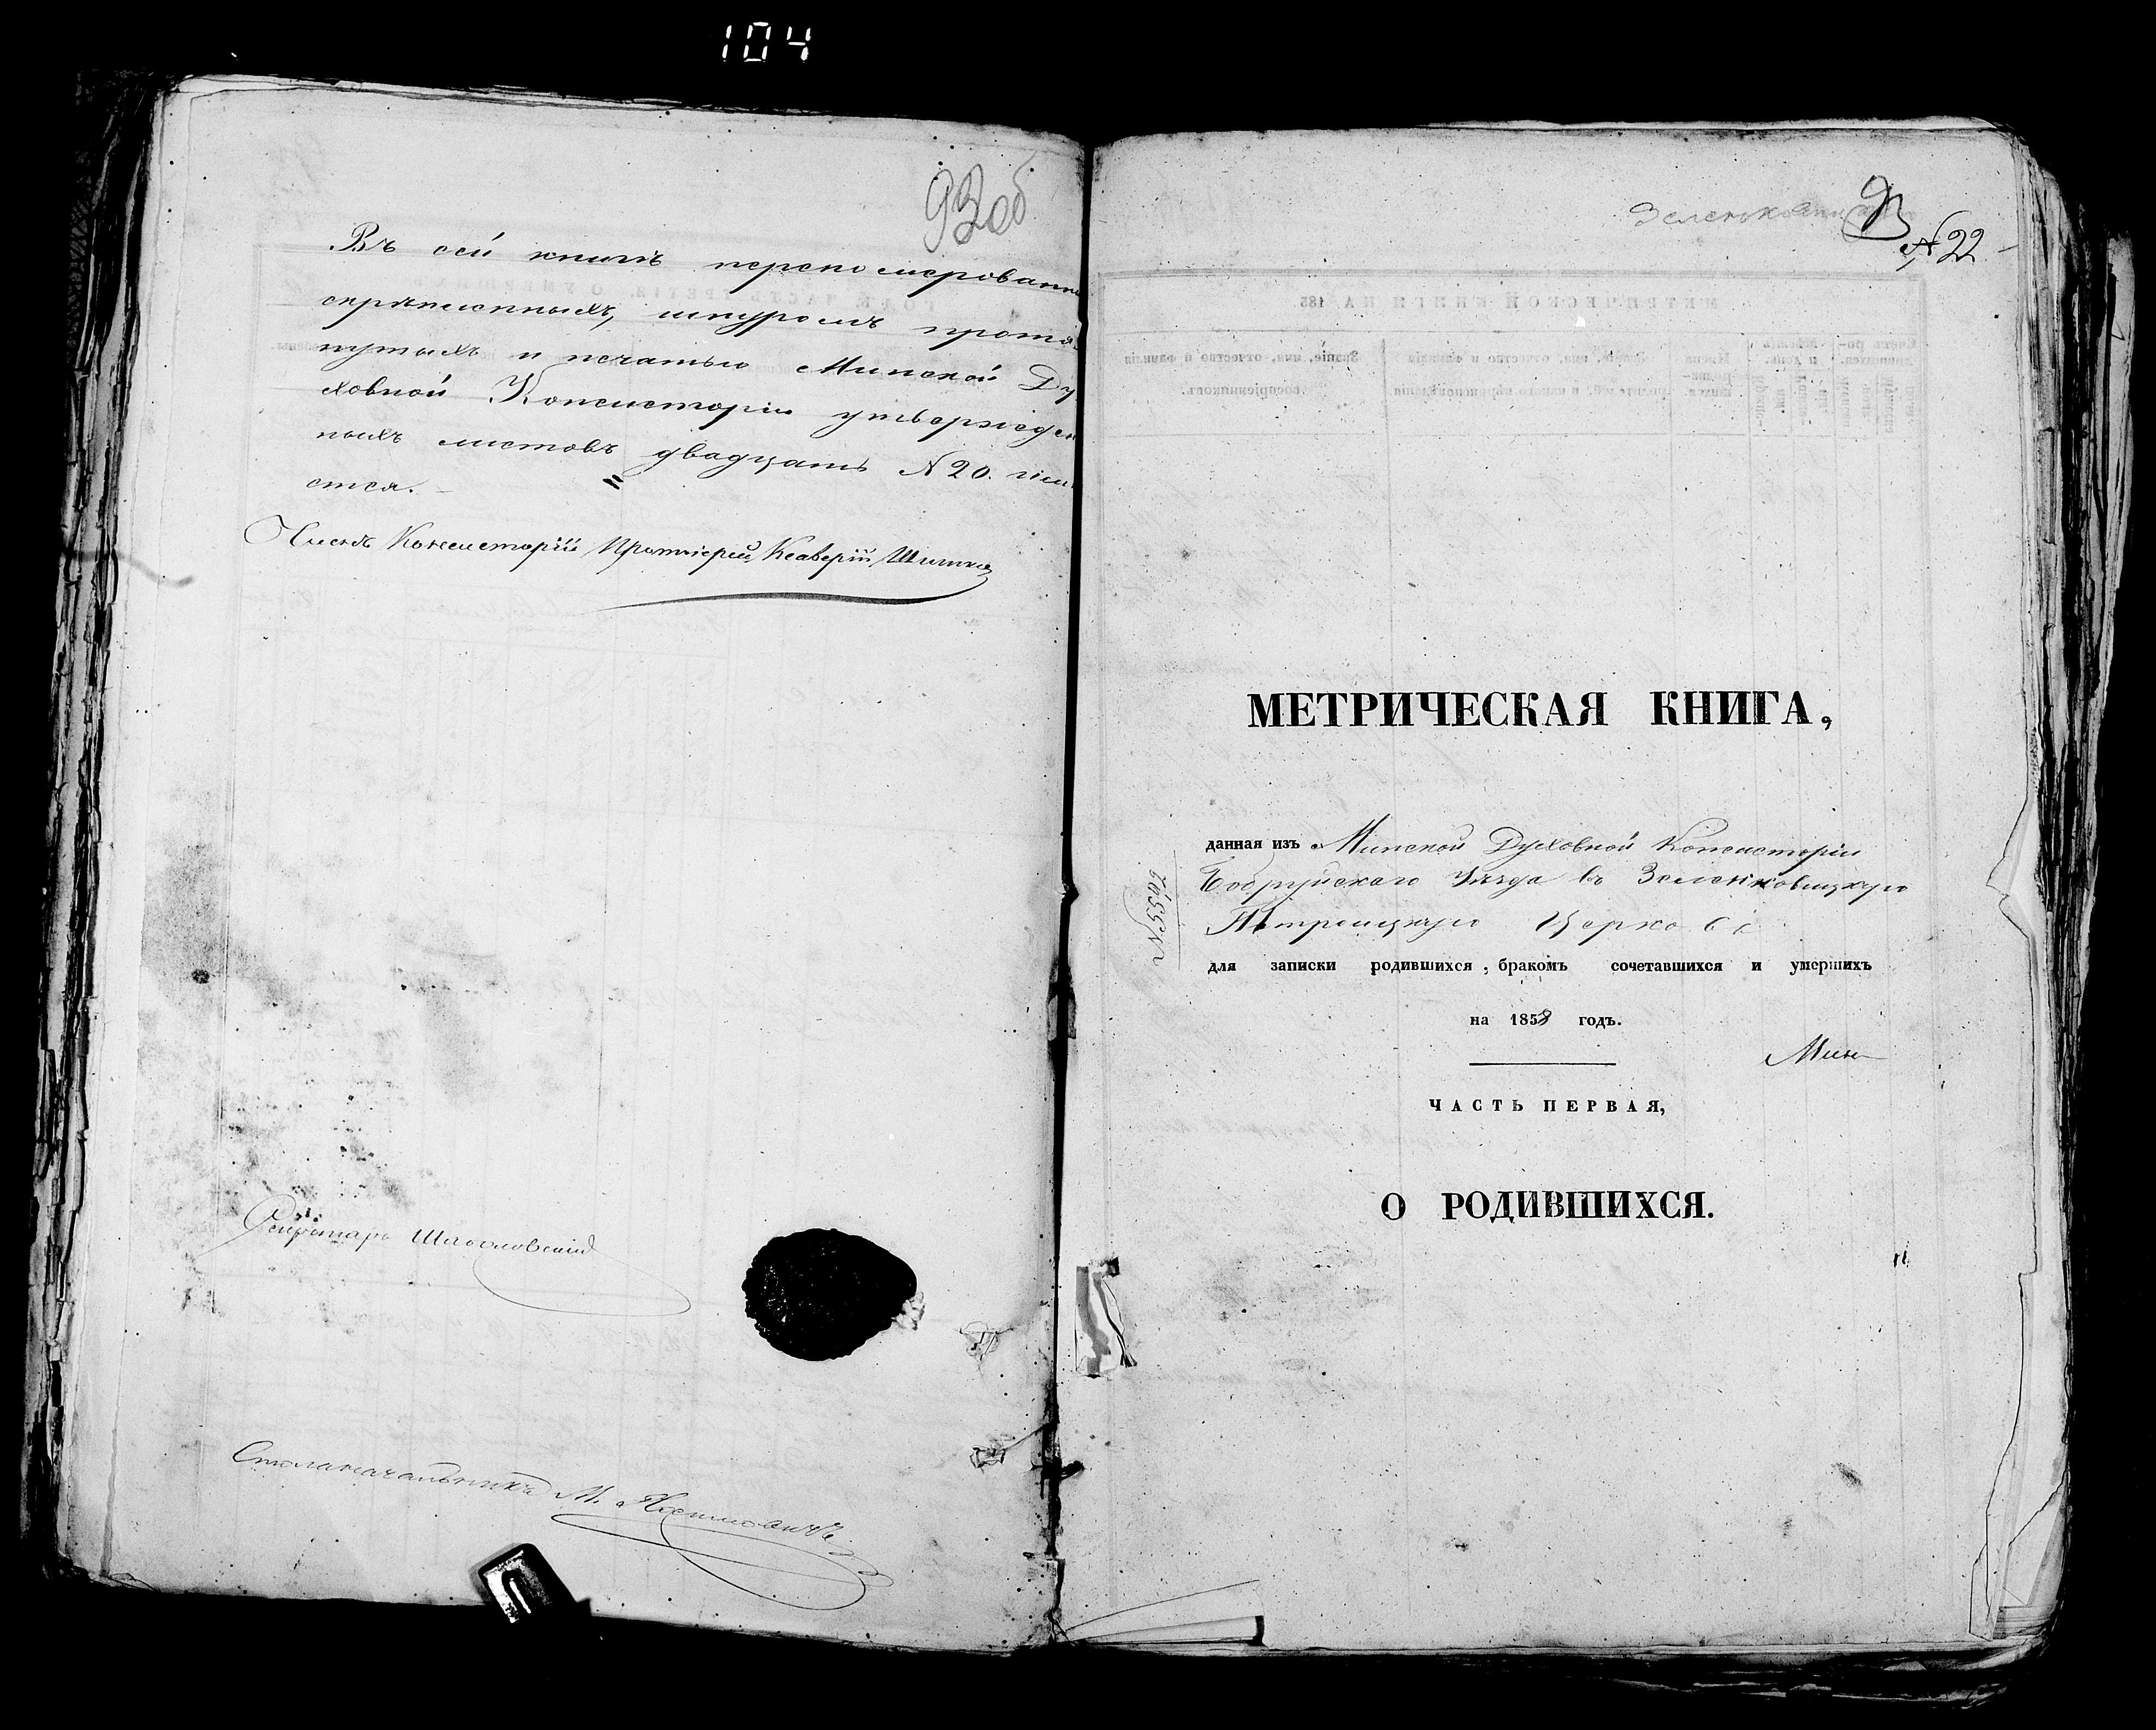 104
93об
Въ сей книгѣ перенумерованн
скрѣпленныхъ, шнуромъ протя
нутыхъ и печатью Минской Ду
ховной Консисторіи утвержден
ныхъ листовъ двадцать N 20.
стся.
Членъ Консисторіи Протоіерей Ксаверій
Секретарь
Столоначальникъ М.
N 22
МЕТРИЧЕСКАЯ КНИГА,
данная изъ Минской Духовной Консисторіи
Бобруйскаго Уѣзда въ Зеленковицкую
Церковь
для записки родившихся, бракомъ сочетавшихся и умершихъ
на 1858 годъ.
Мин
ЧАСТЬ ПЕРВАЯ,
О РОДИВШИХСЯ.